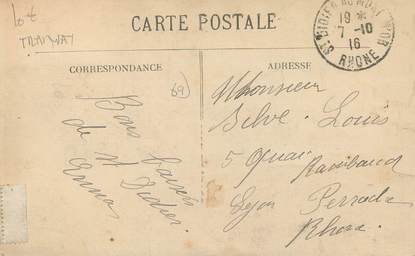 lot
TRAMWAY
CARTE POSTALE
ST DIDIER AU MONT D'OR
19 *
7 -10
16
RHONE
CORRESPONDANCE
ADRESSE
69
Bons baisers
de St Didier
Emma
Monsieur
Selve Louis
5 Quai Rambaud
Lyon Perrache
Rhône